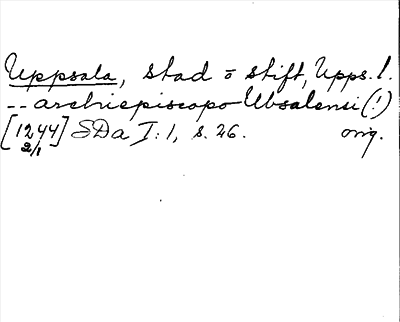 Uppsala, stad o stift, Upps. l.
-- archiepiscopo Ubsalensi (!)
[1244] SDa I: 1, s. 26. orig.
2/1